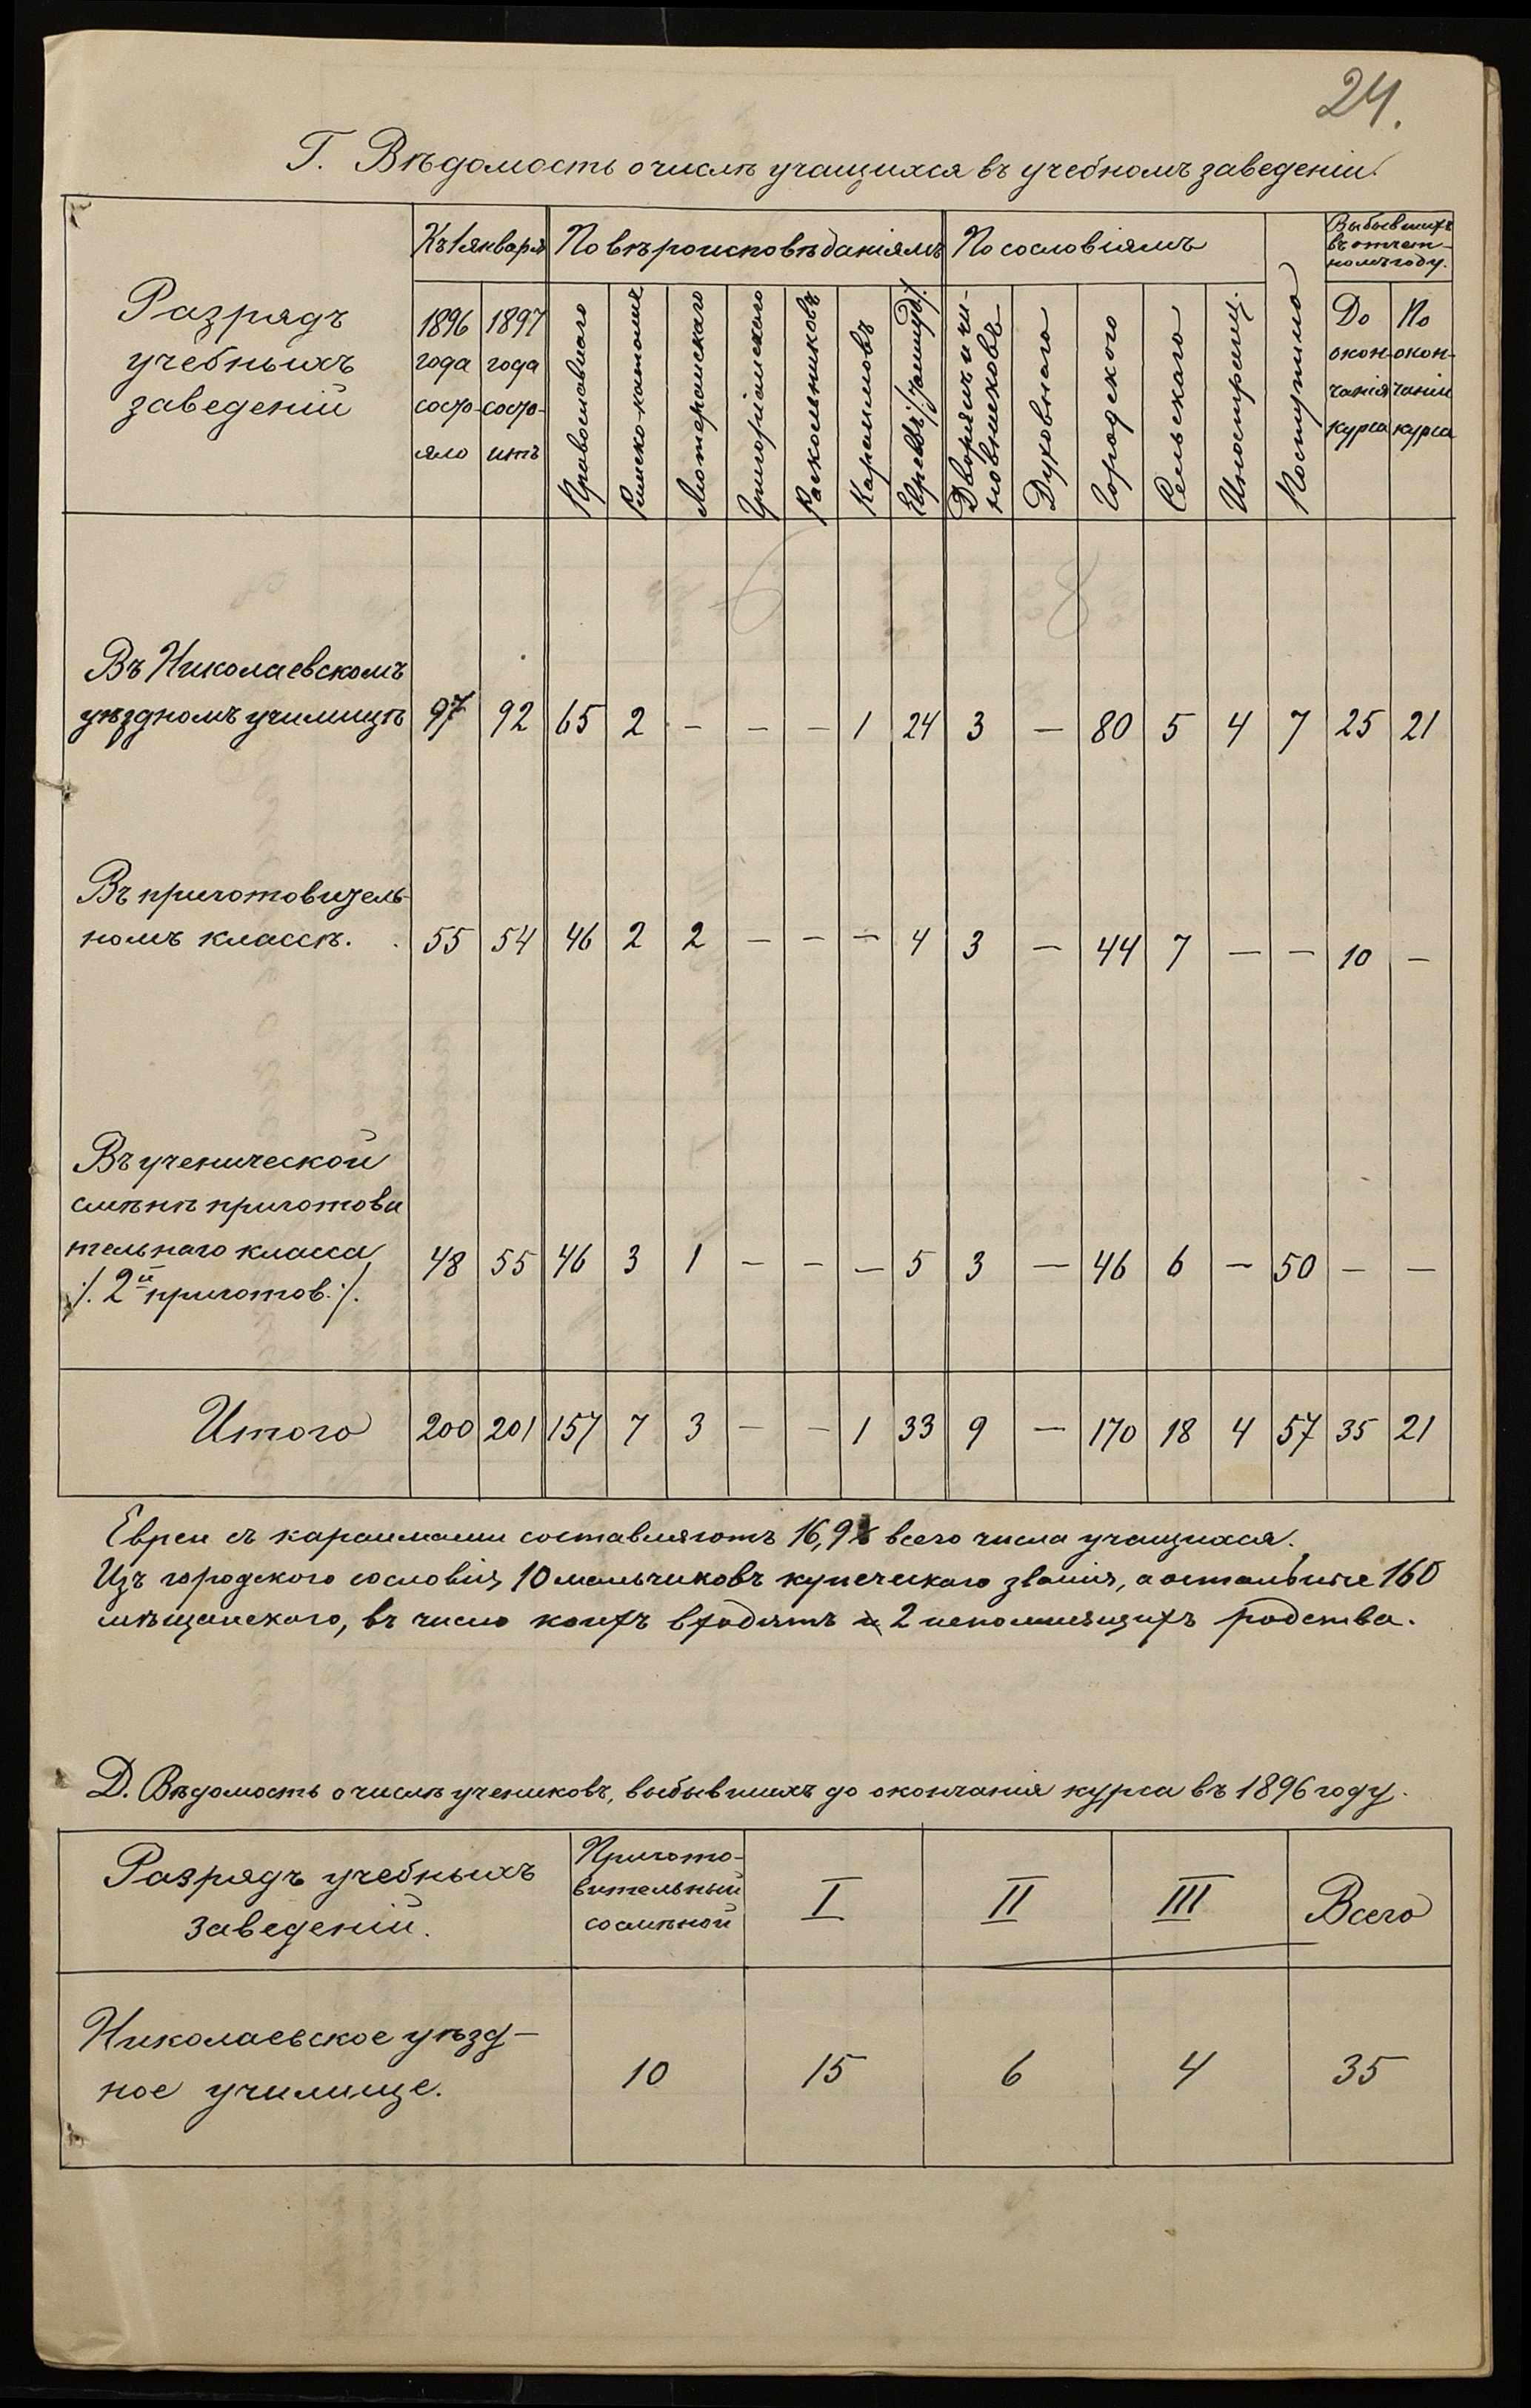 24.
Г. Вѣдомость о числѣ учащихся въ учебномъ заведеніи.
Разрядъ
учебныхъ
заведеній
Къ 1 января
1896
года
состо-
яло
1897
года
состо-
итъ
По вѣроисповѣданіямъ
Православнаго
Римско-католич.
Лютеранскаго
Григоріанскаго
Раскольниковъ
Караимовъ
Евреевъ
По сословіямъ
Дворянъ и чи-
новниковъ
Духовнаго
Городского
Сельскаго
Иностранц.
Поступило
Выбывшихъ
въ отчет-
номъ году.
До
окон-
чанія
курса
По
окон-
чаніи
курса
Въ Николаевскомъ
уѣздномъ училищѣ 97 92 65 2 — — — 1 24 3 — 80 5 4 7 25 21
Въ приготовитель-
номъ классѣ. 55 54 46 2 2 — — — 4 3 — 44 7 — — 10 —
Въ ученической
смѣнѣ приготови
тельнаго класса 48 55 46 3 1 — — — 5 3 — 46 6 — 50 — —
/. 2й приготов. /.
Итого 200 201 157 7 3 — — 1 33 9 — 170 18 4 57 35 21
Евреи съ караимами составляютъ 16,9% всего числа учащихся.
Изъ городского сословія 10 мальчиковъ купеческаго званія, а остальные 160
мѣщанскаго, въ число коихъ входятъ и 2 непомнящихъ родства.
Д. Вѣдомость о числѣ учениковъ, выбывшихъ до окончанія курса въ 1896 году.
Разрядъ учебныхъ
заведеній.
Пригото-
вительный
со смѣной
I II III Всего
Николаевское уѣзд-
ное училище. 10 15 6 4 35